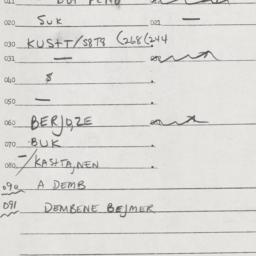 011
020 SUK 021 —
030 KUSIT/S8T8 (268(244
031 —
040 $
050 —
060 BERJOZE
070 BUK
080 KASITA,NEN
090 A DEMB
091 DEMBENE BEJMER